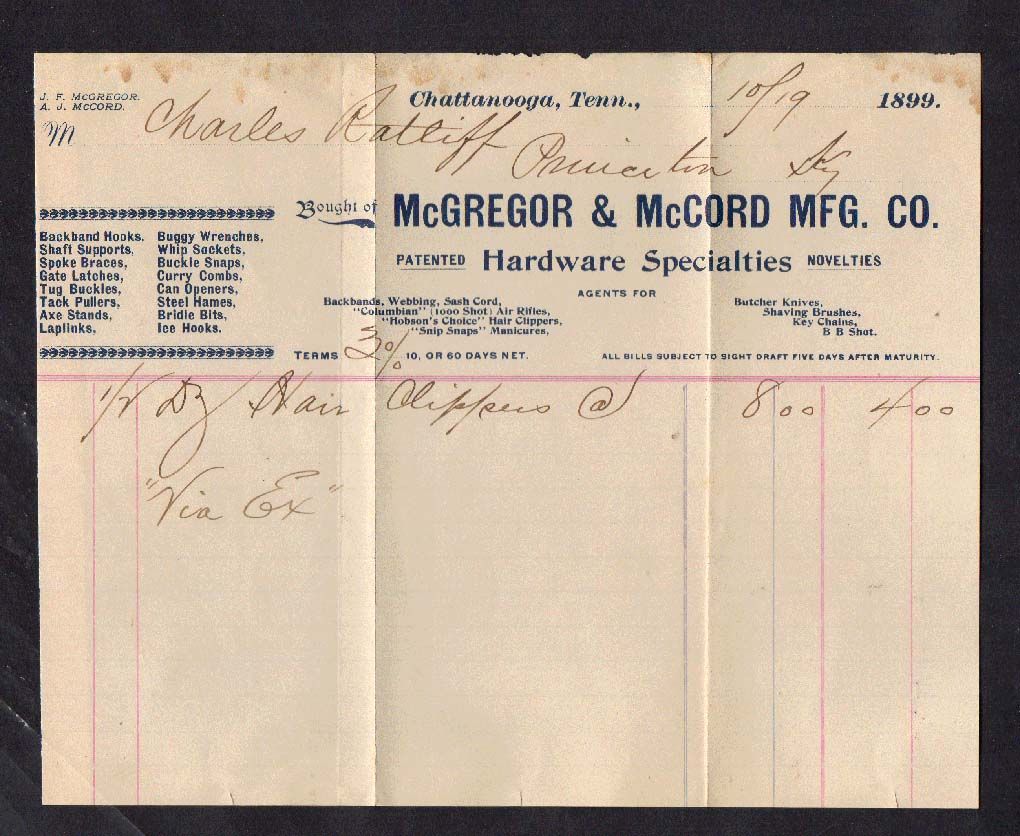 J. F. McGREGOR.
A. J. McCORD.
Chattanooga, Tenn., 10/19 1899.
M Charles Ratliff
Princeton Ky
Bought of McGREGOR & McCORD MFG. CO.
PATENTED Hardware Specialties NOVELTIES
Backband Hooks. Buggy Wrenches,
Shaft Supports, Whip Sockets,
Spoke Braces, Buckle Snaps,
Gate Latches, Curry Combs,
Tug Buckles, Can Openers,
Tack Pullers, Steel Hames,
Axe Stands, Bridle Bits,
Laplinks, Ice Hooks.
AGENTS FOR
Backbands, Webbing, Sash Cord,
"Columbian" (1000 Shot) Air Rifles,
"Hobson's Choice" Hair Clippers,
"Snip Snaps" Manicures,
Butcher Knives,
Shaving Brushes,
Key Chains,
B B Shot.
TERMS 3% 10, OR 60 DAYS NET. ALL BILLS SUBJECT TO SIGHT DRAFT FIVE DAYS AFTER MATURITY.
1/2 Dz Hair Clippers @ 8 00 4 00
"Via Ex"